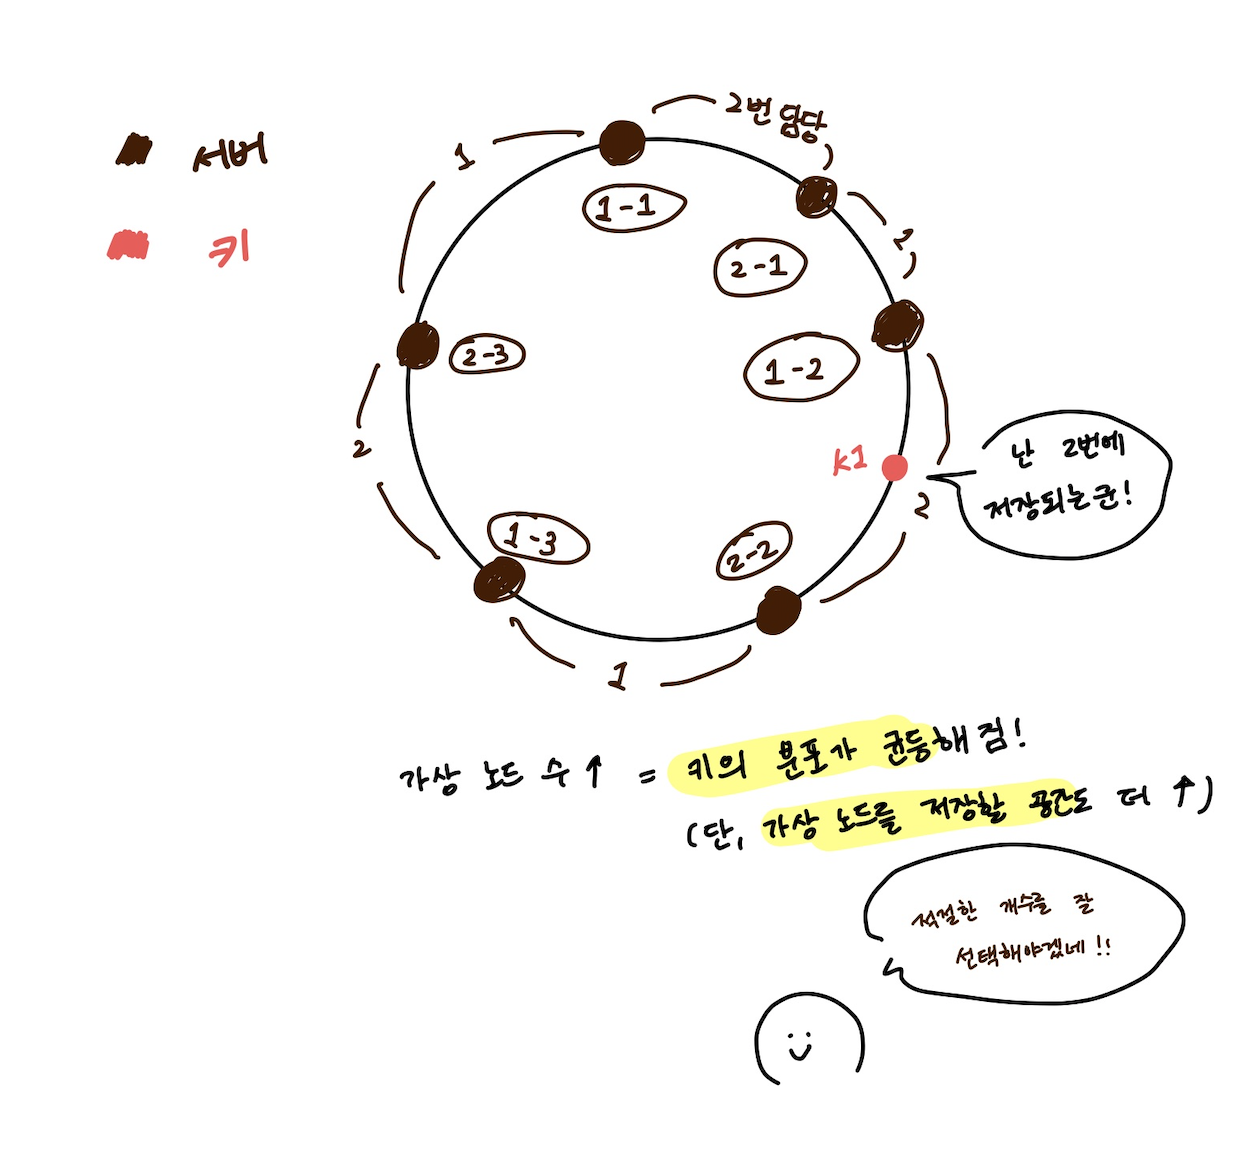 서버
키
2번 담당
1
1-1
2-1
1
2-3
1-2
2
K1
난 2번에
저장되는군!
2
1-3
2-2
1
가상 노드 수 ↑ = 키의 분포가 균등해짐!
(단, 가상 노드를 저장할 공간도 더 ↑)
적절한 개수를 잘
선택해야겠네!!